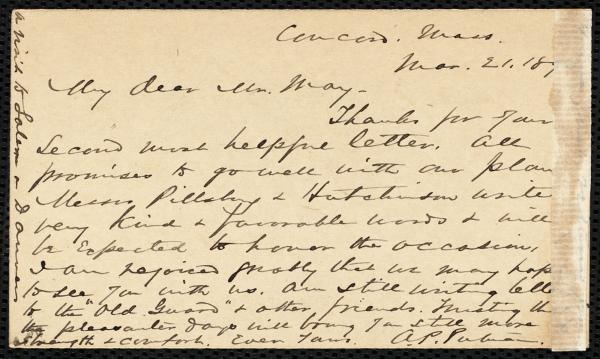 Concord. Mass.
Mar. 21. 189
My dear Mr. May -
Thanks for your
second most helpful letter. All
promises to go well with our plan
Messrs Pillsbury & Hutchinson write
very kind & favorable words & will
be expected to honor the occasion,
I am rejoiced greatly that we may hope
to see you with us. Am still writing lett
to the "Old Guard" & other friends. Trusting th
the pleasanter days will bring you still more
strength & comfort. Ever Yours. A. P. Putnam
a visit to Salem or Danvers